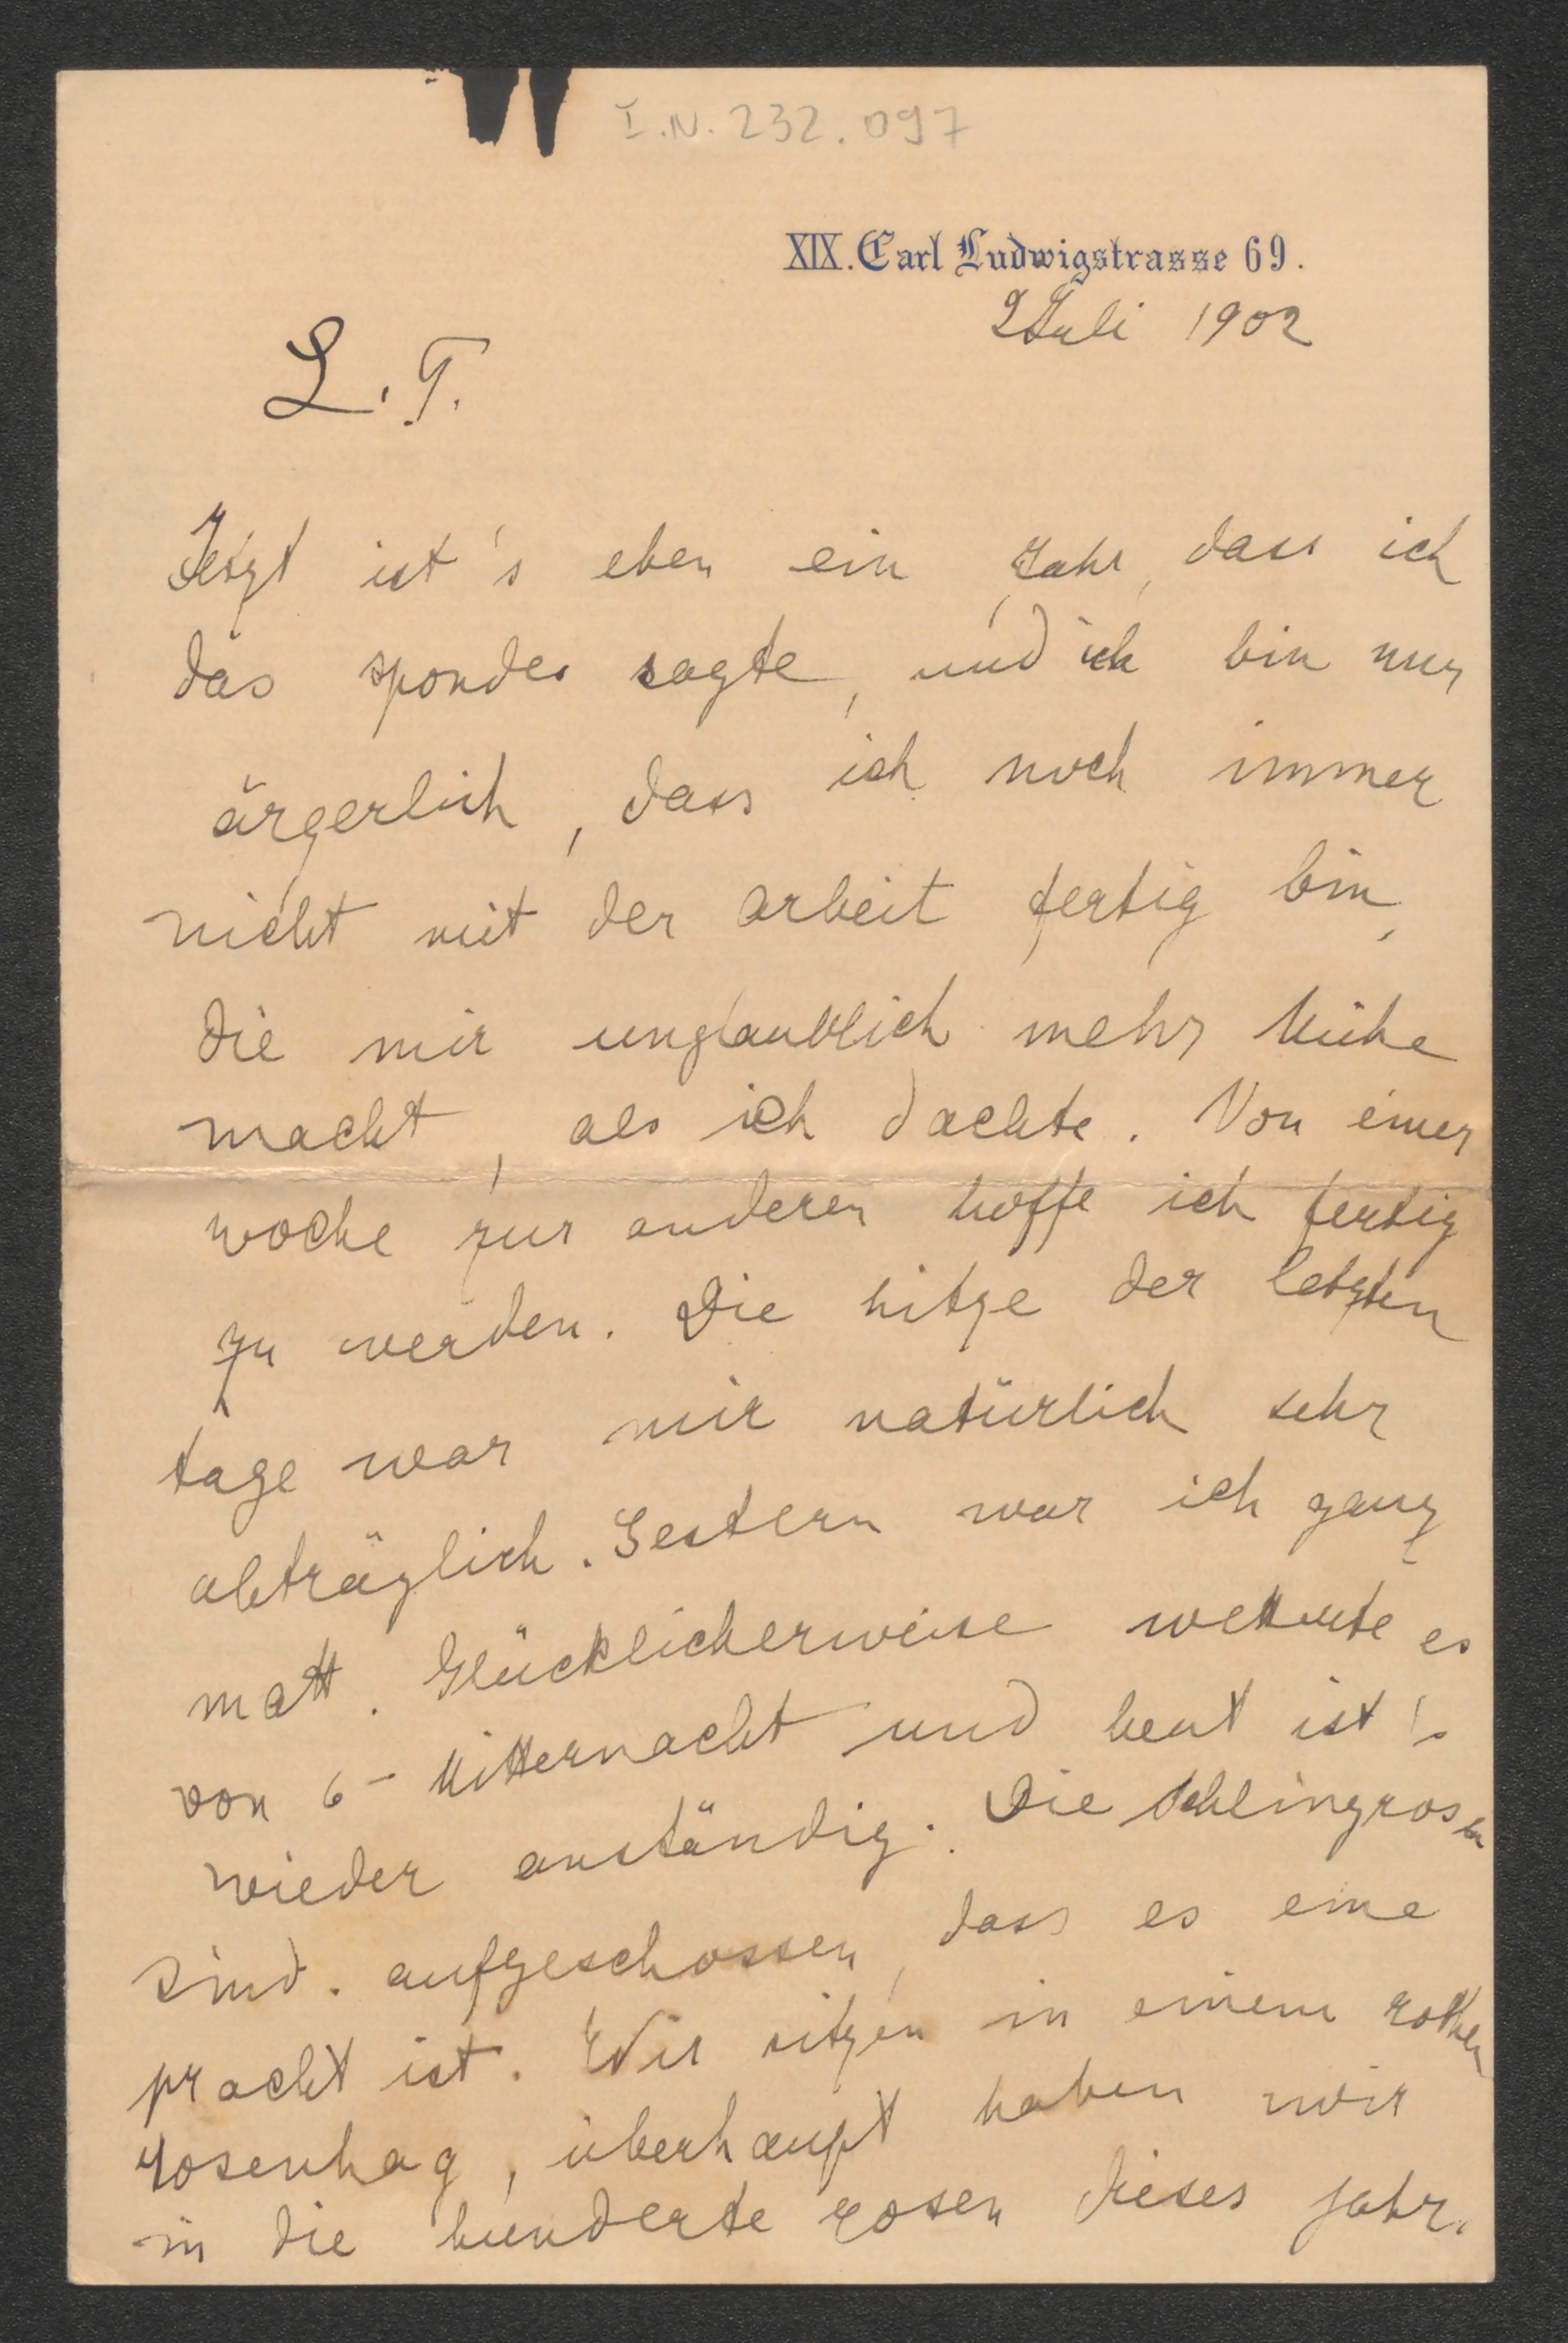 I.N. 232.097
XIX. Carl Ludwigstrasse 69.
2 Juli 1902
L. T.
Jetzt ist's eben ein Jahr, dass ich
das spondeo sagte, und ich bin nur
ärgerlich, dass ich noch immer
nicht mit der arbeit fertig bin,
die mir unglaublich mehr Mühe
macht, als ich dachte. Von einer
woche zur anderen hoffe ich fertig
zu werden. Die hitze der letzten
tage war mir natürlich sehr
abträglich. Gestern war ich ganz
matt. Glücklicherweise wetterte es
von 6 - Mitternacht und heut ist's
wieder anständig. Die Schlingrosen
sind . aufgeschossen, dass es eine
pracht ist. Wir sitzen in einem rothen
rosenhag, überhaupt haben wir
in die hunderte rosen dieses jahr.